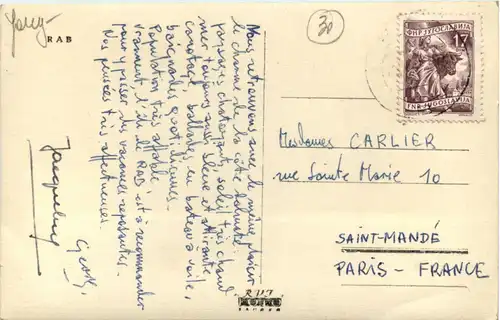 RAB
30
Nous retrouvons avec le même plaisir
le charme de la côte dalmate
paysages chatoyants, soleil très chaud
mer toujours aussi bleue et attirante
canotage, ballades en bateau à voile,
baignades quotidiennes.
Population très affable.
Vraiment, l'île de RAB est à recommander
pour y passer des vacances reposantes.
Nos pensées très affectueuses.
Jacqueline
ФНР ЈУГОСЛАВИЈА
17
FNR JUGOSLAVIJA
Mesdames CARLIER
rue Sainte Marie 10
SAINT-MANDÉ
PARIS - FRANCE
PUT
ZAGREB